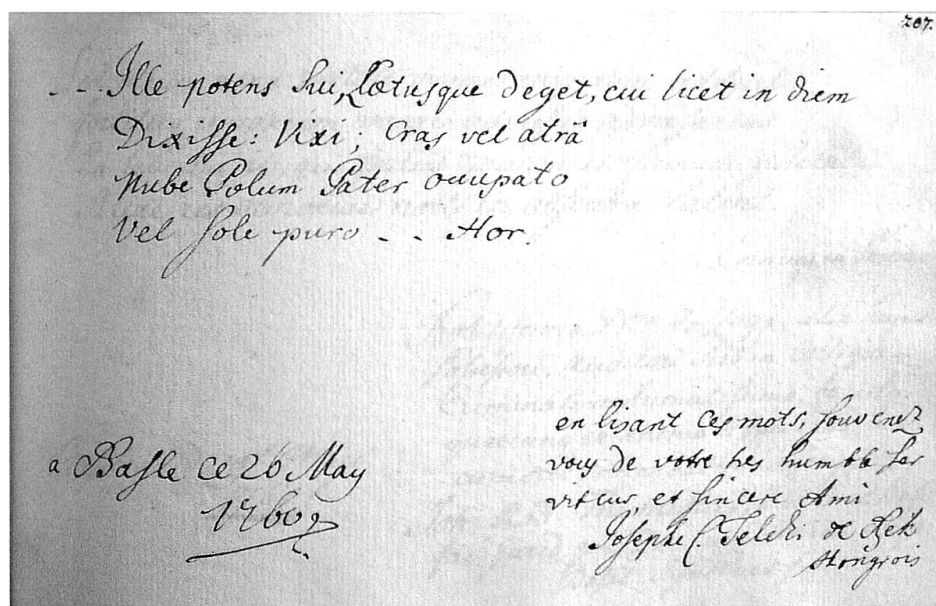 207.
- - Ille potens Sui, Lætusque deget, cui licet in diem
Dixisse: Vixi; Cras vel atrâ
Nube Polum Pater occupato
Vel Sole puro - - Hor.
en lisant ces mots, souvenez
vous de votre tres humble ser
viteur, et sincere Ami
Joseph C. Teleki de Szek
Hongrois
a Basle ce 26 May
1760